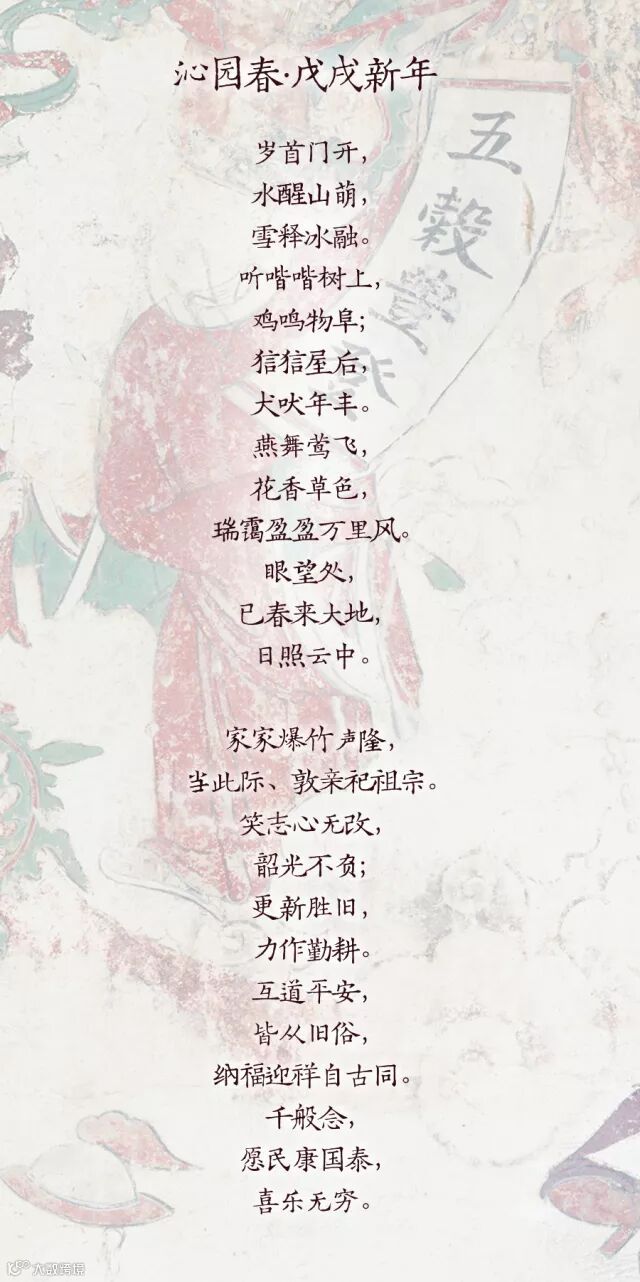 沁园春·戊戌新年
五
穀
豐
岁首门开，
水醒山萌，
雪释冰融。
听喈喈树上，
鸡鸣物阜；
狺狺屋后，
犬吠年丰。
燕舞莺飞，
花香草色，
瑞霭盈盈万里风。
眼望处，
已春来大地，
日照云中。
家家爆竹声隆，
当此际、敦亲祀祖宗。
笑志心无改，
韶光不负；
更新胜旧，
力作勤耕。
互道平安，
皆从旧俗，
纳福迎祥自古同。
千般念，
愿民康国泰，
喜乐无穷。
大数跨境